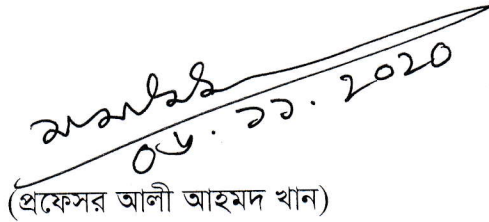 ০৬.১১.২০২০
(প্রফেসর আলী আহমদ খান)